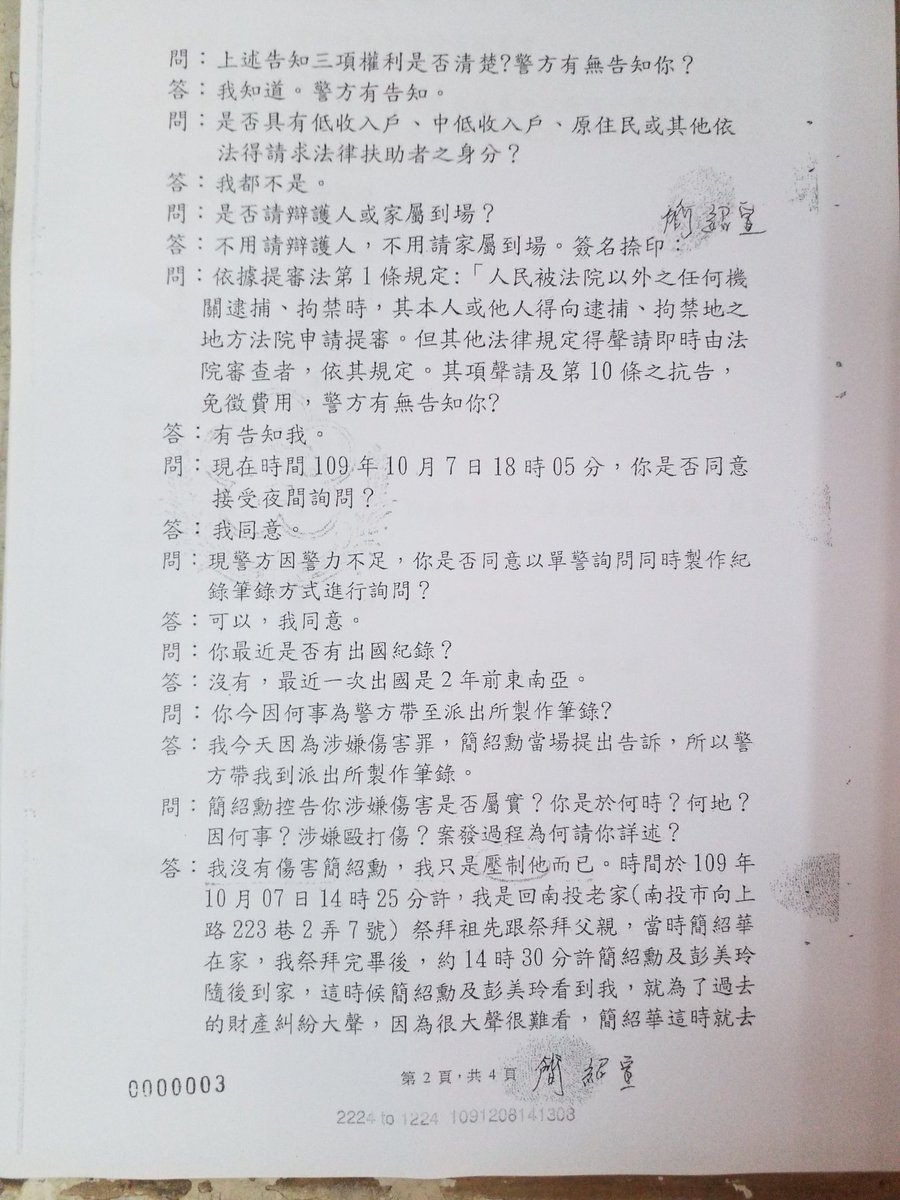 問：上述告知三項權利是否清楚?警方有無告知你？
答：我知道。警方有告知。
問：是否具有低收入戶、中低收入戶、原住民或其他依
法得請求法律扶助者之身分？
答：我都不是。
問：是否請辯護人或家屬到場？
簡紹宣
答：不用請辯護人，不用請家屬到場。簽名捺印：
問：依據提審法第1條規定:「人民被法院以外之任何機
關逮捕、拘禁時，其本人或他人得向逮捕、拘禁地之
地方法院申請提審。但其他法律規定得聲請即時由法
院審查者，依其規定。其項聲請及第10條之抗告，
免徵費用，警方有無告知你?
答：有告知我。
問：現在時間109年10月7日18時05分，你是否同意
接受夜間詢問？
答：我同意。
問：現警方因警力不足，你是否同意以單警詢問同時製作紀
錄筆錄方式進行詢問？
答：可以，我同意。
問：你最近是否有出國紀錄？
答：沒有，最近一次出國是2年前東南亞。
問：你今因何事為警方帶至派出所製作筆錄?
答：我今天因為涉嫌傷害罪，簡紹勳當場提出告訴，所以警
方帶我到派出所製作筆錄。
問：簡紹勳控告你涉嫌傷害是否屬實？你是於何時？何地？
因何事？涉嫌毆打傷？案發過程為何請你詳述？
答：我沒有傷害簡紹勳，我只是壓制他而已。時間於109年
10月07日14時25分許，我是回南投老家(南投市向上
路223巷2弄7號) 祭拜祖先跟祭拜父親，當時簡紹華
在家，我祭拜完畢後，約14時30分許簡紹勳及彭美玲
隨後到家，這時候簡紹勳及彭美玲看到我，就為了過去
的財產糾紛大聲，因為很大聲很難看，簡紹華這時就去
第2頁，共4頁
簡紹宣
0000003
2224 to 1224 1091208141308